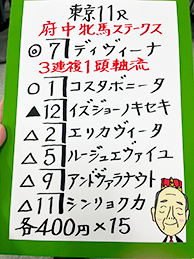 東京11R
府中牝馬ステークス
◎7ディヴィーナ
3連複1頭軸流
○1コスタボニータ
▲12イズジョーノキセキ
△2エリカヴィータ
△5ルージュエヴァイユ
△9アンドヴァラナウト
△11シンリョクカ
各400円×15